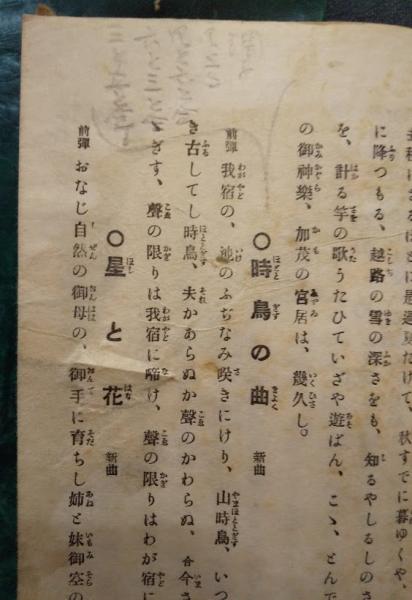 に降つもる、越路の雪の深さをも、知るやしるしのさ
を、計る竿の歌うたひていざや遊ばん、こゝ、とんで
の御神樂、加茂の宮居は、幾久し。
〇時鳥の曲 新曲
前彈 我宿の、池のふぢなみ咲きにけり、山時鳥、いつ
き古してし時鳥、夫かあらぬか聲のかわらぬ、合今さ
ゝぎす、聲の限りは我宿に啼け、聲の限りはわが宿に
〇星と花 新曲
前彈 おなじ自然の御母の、御手に育ちし姉と妹御空の